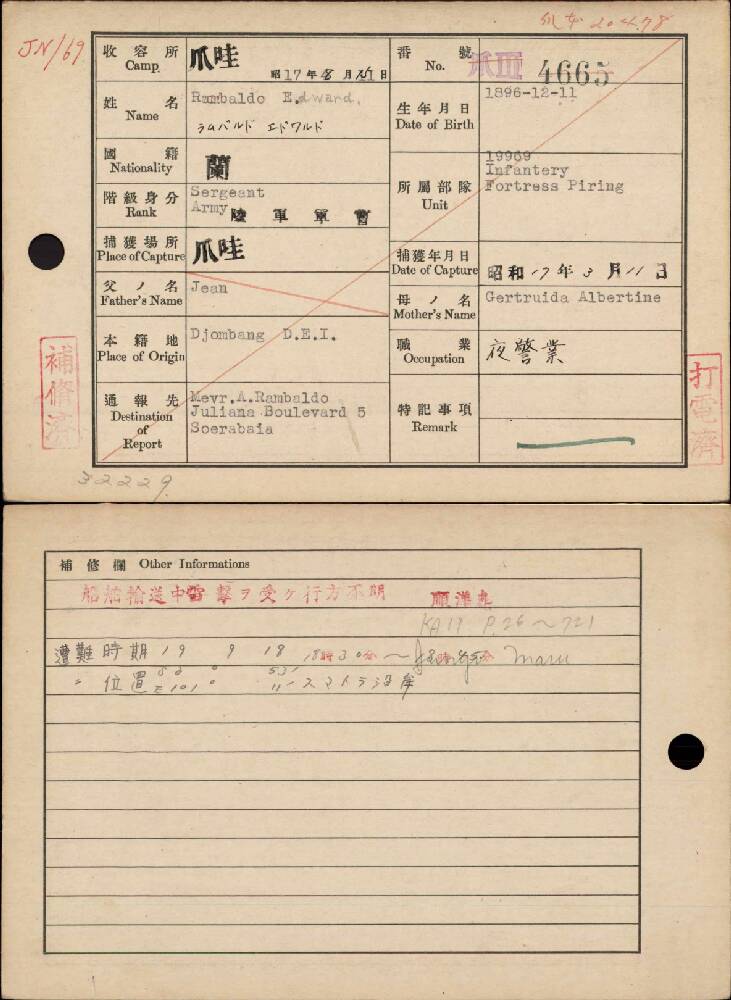 JN/69
收容所
Camp.
爪哇
昭17年8月15日
番號
No.
爪III 4665
姓名
Name
Rambaldo Edward.
ラムバルド エドワルド
生年月日
Date of Birth
1896-12-11
國籍
Nationality
蘭
階級身分
Rank
Sergeant
Army
陸軍軍曹
所屬部隊
Unit
19969
Infantery
Fortress Piring
捕獲場所
Place of Capture
爪哇
捕獲年月日
Date of Capture
昭和17年3月11日
父ノ名
Father's Name
Jean
母ノ名
Mother's Name
Gertruida Albertine
本籍地
Place of Origin
Djombang D.E.I.
職業
Occupation
夜警業
通報先
Destination
of
Report
Mevr.A.Rambaldo
Juliana Boulevard 5
Soerabaia
特記事項
Remark
補修済
打電濟
32229
補修欄 Other Informations
船舶輸送中雷撃ヲ受ケ行方不明 順洋丸
KA17 P.26~721
遭難時期 19 9 18 18時30分~
Maru
〃 位置
スマトラ沿岸